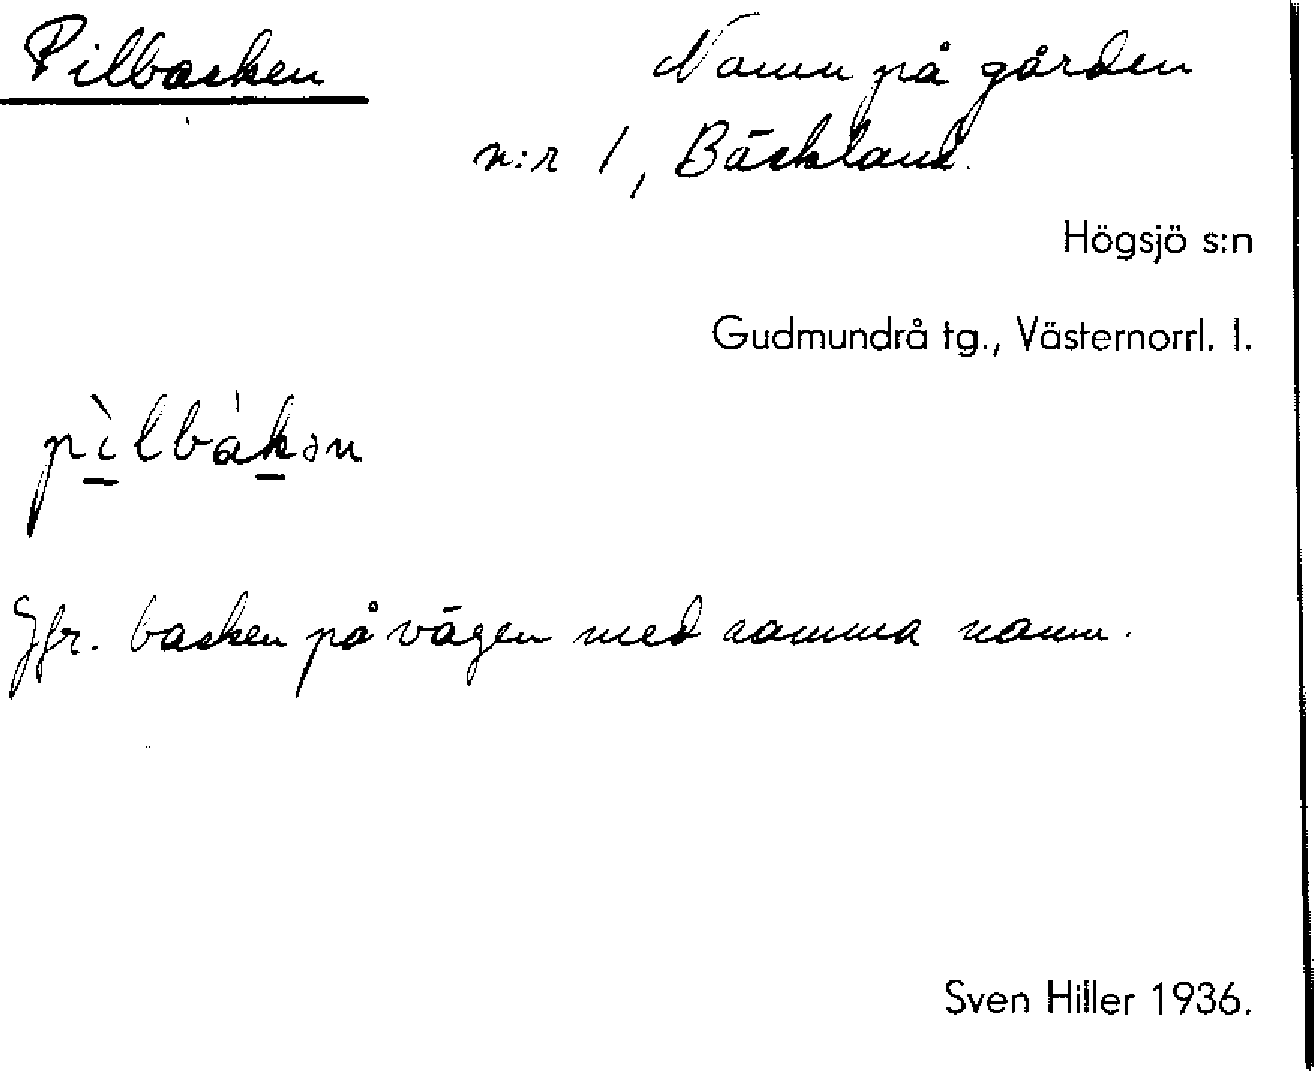 Pilbacken
Namn på gården
n:r 1, Bäckland.
Högsjö s:n
Gudmundrå tg., Västernorrl. l.
pìlbàkən
Jfr. backen på vägen med samma namn.
Sven Hiller 1936.